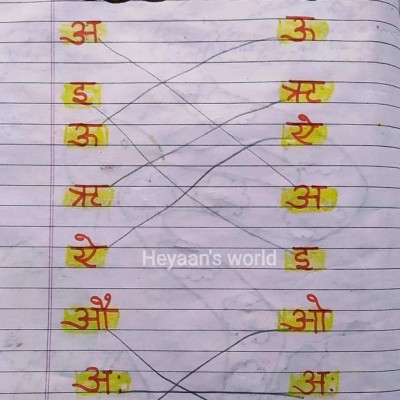 अ ऊ
इ ऋ
ऊ ऐ
ऋ अ
ऐ Heyaan's world इ
औ ओ
अः अः